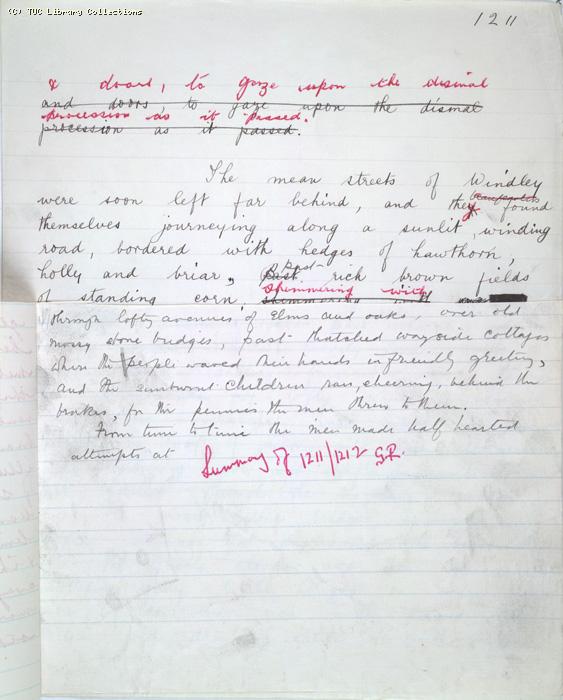 (C) TUC Library Collections
1211
& doors, to gaze upon the dismal
and doors, to gaze upon the dismal
procession as it passed.
procession as it passed.
The mean streets of Windley
were soon left far behind, and they found
themselves journeying along a sunlit, winding
road, bordered with hedges of hawthorn,
holly and briar, past rich brown fields
shimmering with
of standing corn, shimmering with
through lofty avenues of Elms and oaks, over old
mossy stone bridges, past thatched wayside cottages
where the people waved their hands in friendly greeting,
and the sunburnt children ran, cheering, behind the
brakes, for the pennies the men threw to them.
From time to time the men made half hearted
attempts at
Summary of 1211/1212 G.R.